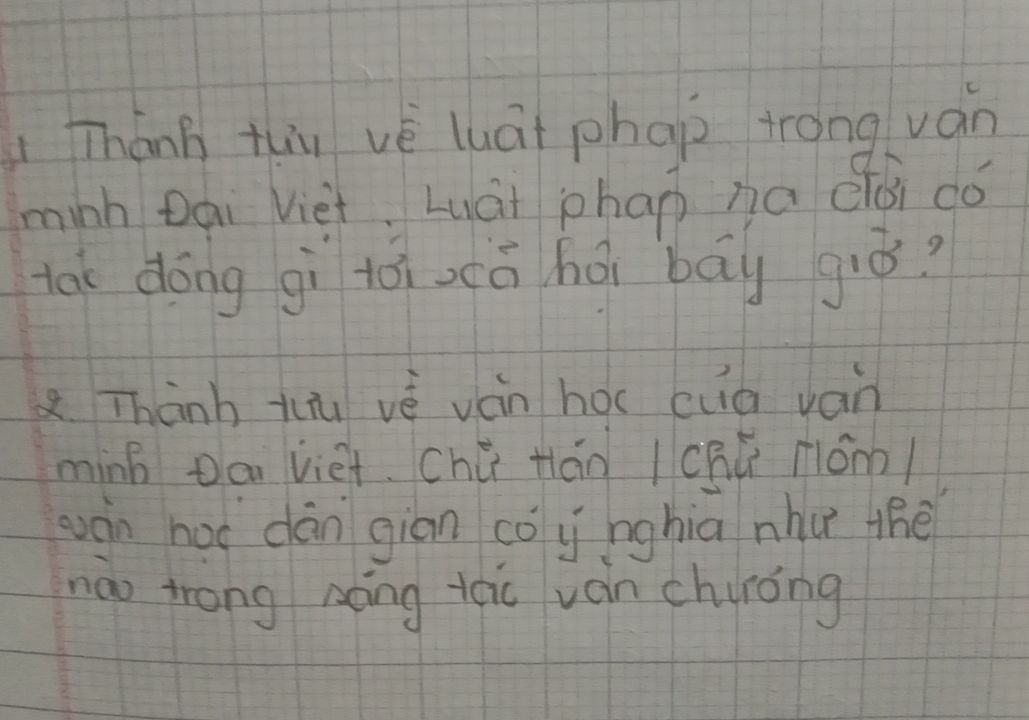 1 Thành tựu về luật pháp trong văn
minh Đại Việt. Luật pháp ra đời có
tác động gì tới xã hội bấy giờ?
2 Thành tựu về văn học của văn
minh Đại Việt. Chữ Hán / Chữ Nôm /
văn học dân gian có ý nghĩa như thế
nào trong sáng tác văn chương